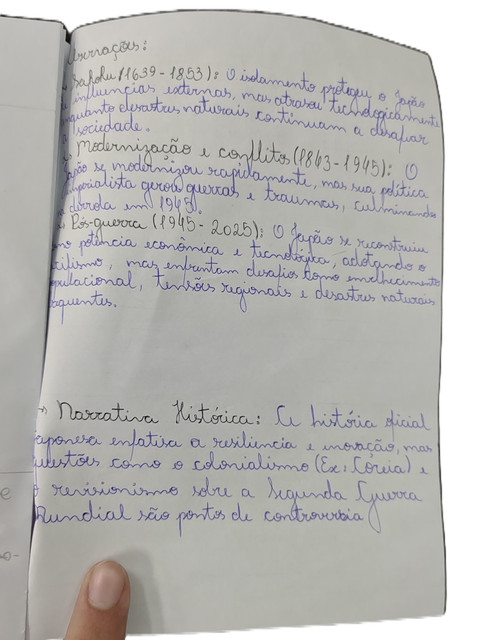 servações:
Sakoku (1639-1853): O isolamento protegeu o Japão
influencias externas, mas atrasou tecnologicamente
nquanto desastres naturais continuam a desafiar
sociedade.
Modernização e conflitos (1863-1945): O
apão se modernizou rapidamente, mas sua política
mperialista gerou guerras e traumas, culminando
derrota em 1945.
Pós-guerra (1945-2025): O Japão se reconstruiu
mo potência econômica e tecnológica, adotando o
cilismo, mas enfrentam desafios como envelhecimento
opulacional, tensões regionais e desastres naturais
requentes.
→ Narrativa Histórica: A história oficial
japonesa enfatisa a resiliencia e inovação, mas
questões como o colonialismo (Ex: Coreia) e
o revisionismo sobre a Segunda Guerra
Mundial são pontos de controversia
e
o-